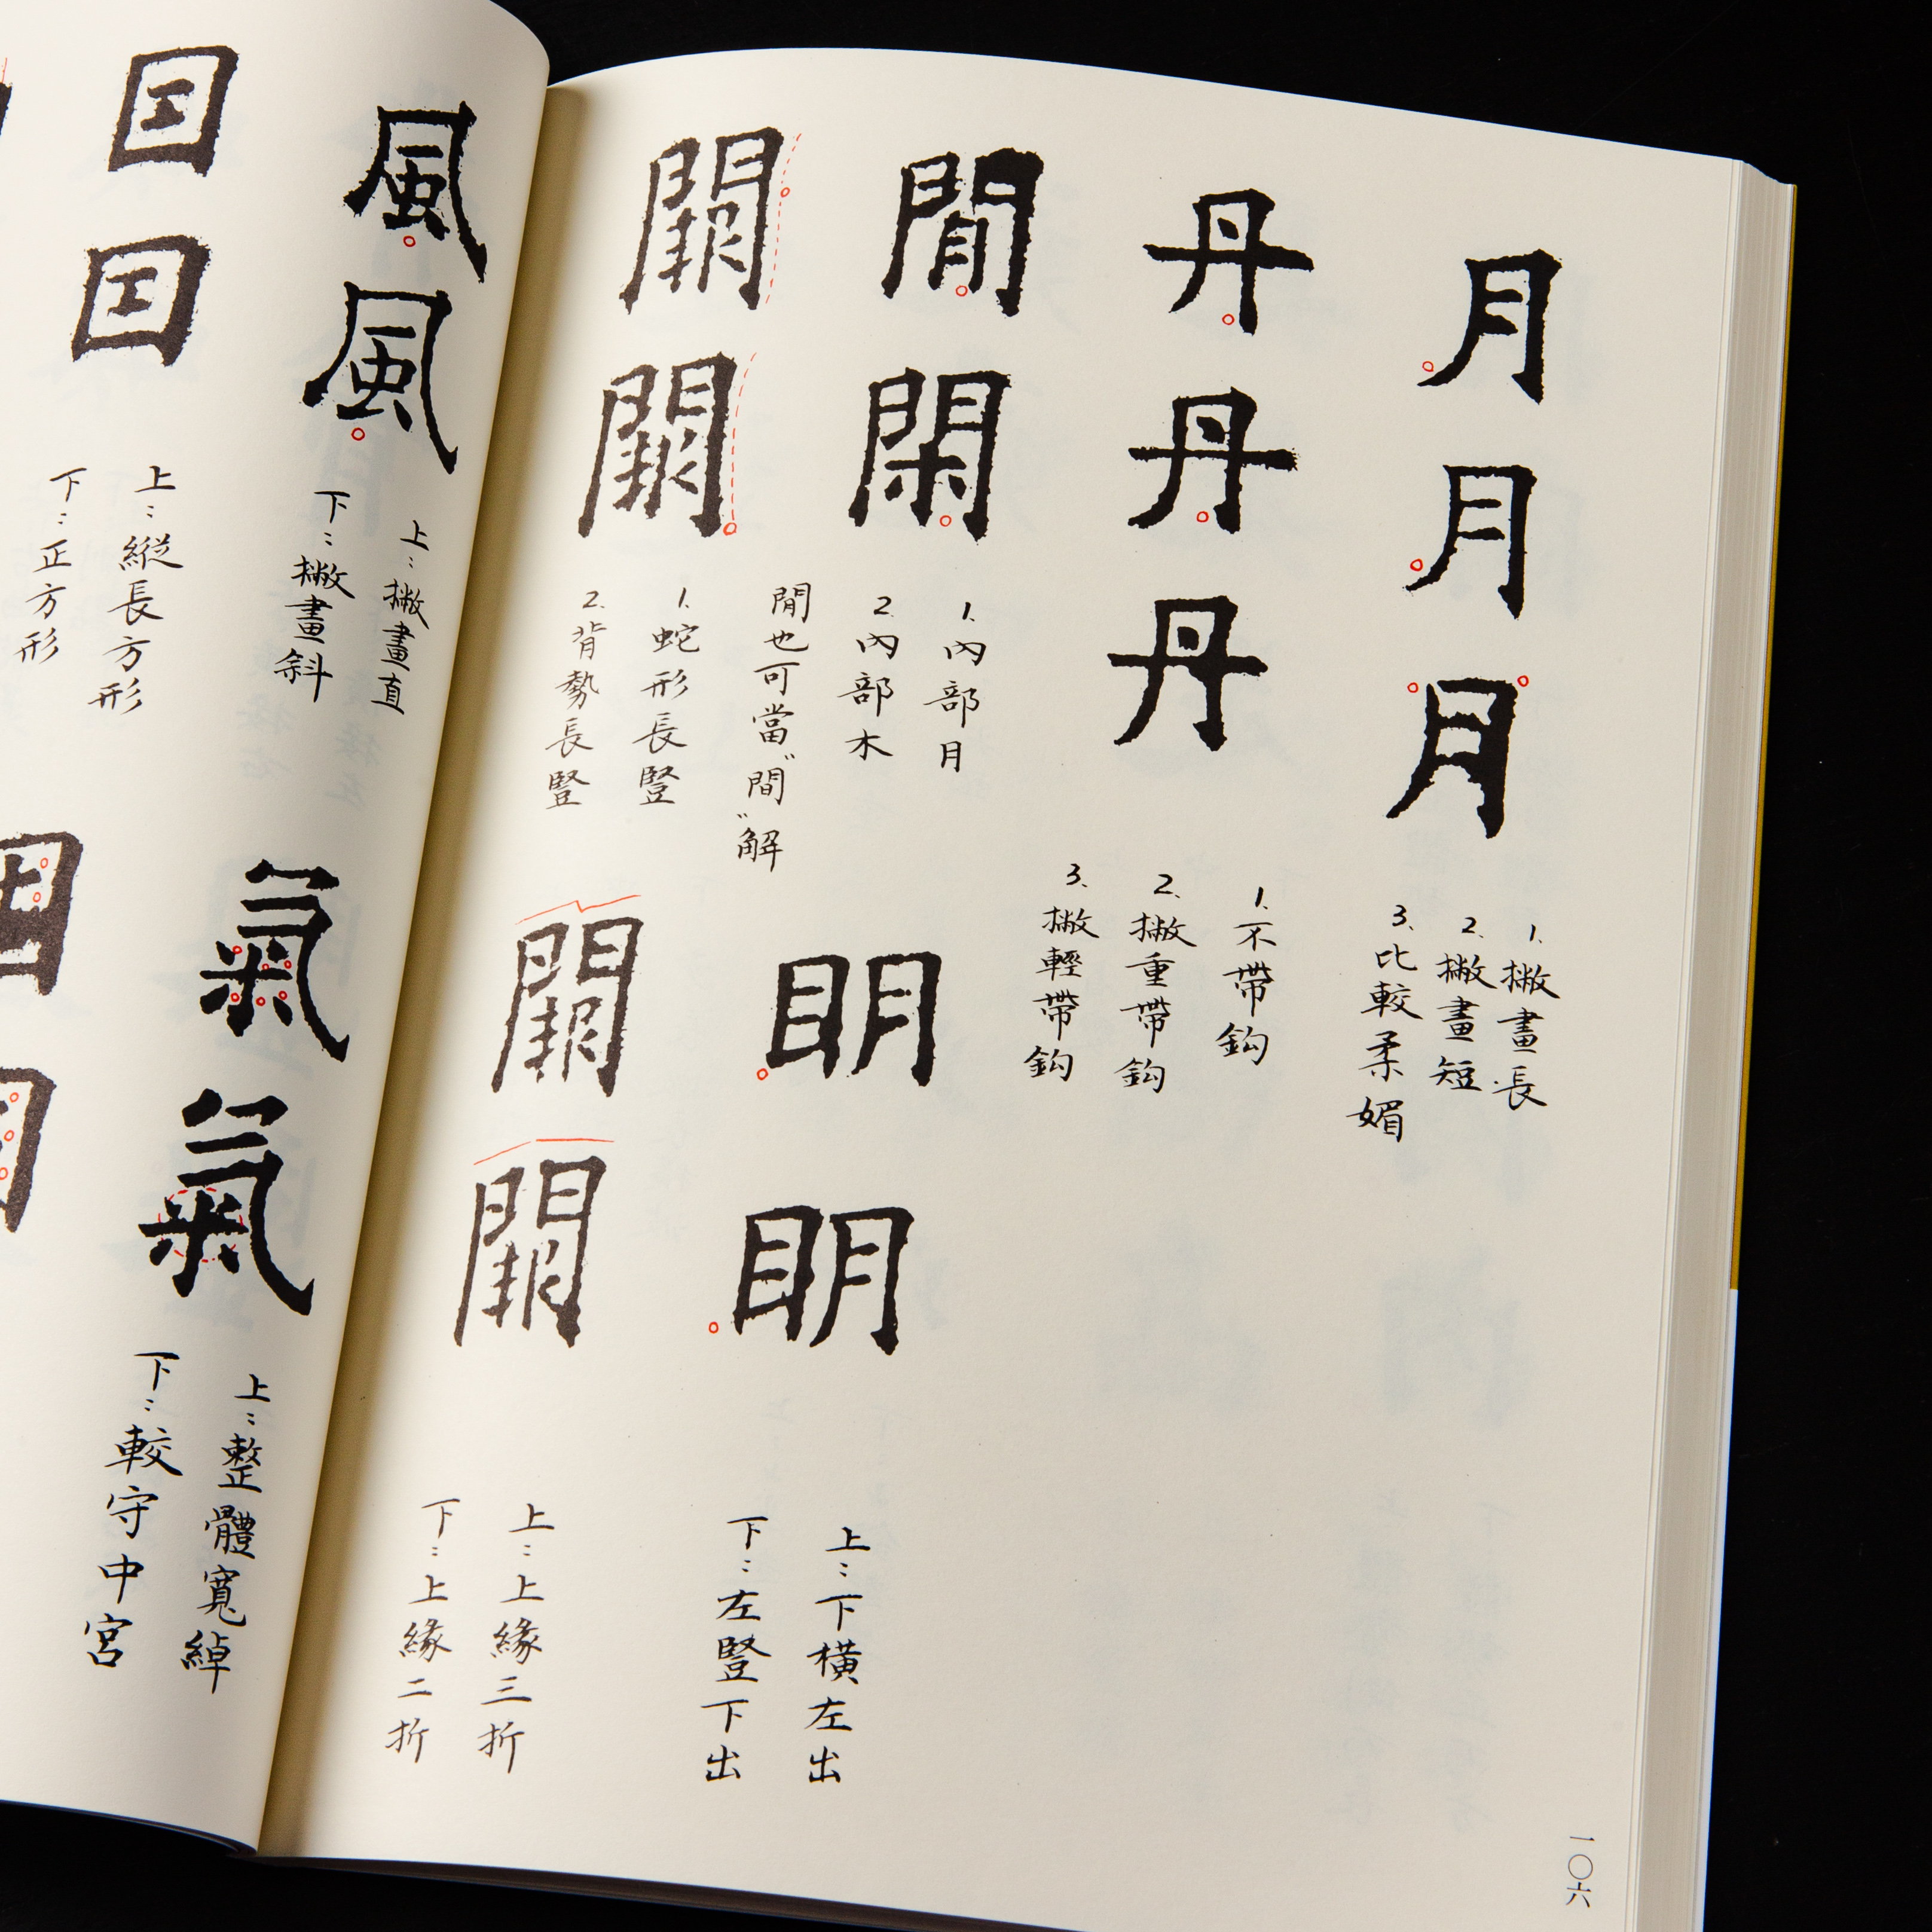 月月月
1.撇畫長
2.撇畫短
3.比較柔媚
丹丹丹
1.不帶鈎
2.撇重帶鈎
3.撇輕帶鈎
閒閑
1.內部月
2.內部木
閒也可當"間"解
眀眀
上:下橫左出
下:左豎下出
闕闕
1.蛇形長豎
2.背勢長豎
闕闕
上:上緣三折
下:上緣二折
一〇六
風風
上:撇畫直
下:撇畫斜
氣氣
上:整體寬綽
下:較守中宮
上:縱長方形
下:正方形